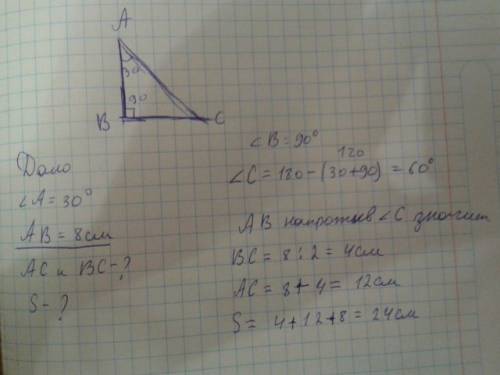 A
30
90
B
C
Дано
∠A = 30°
AB = 8см
AC и BC - ?
S - ?
∠B = 90°
120
∠C = 180 - (30 + 90) = 60°
AB напротив ∠C значит
BC = 8 : 2 = 4см
AC = 8 + 4 = 12см
S = 4 + 12 + 8 = 24см